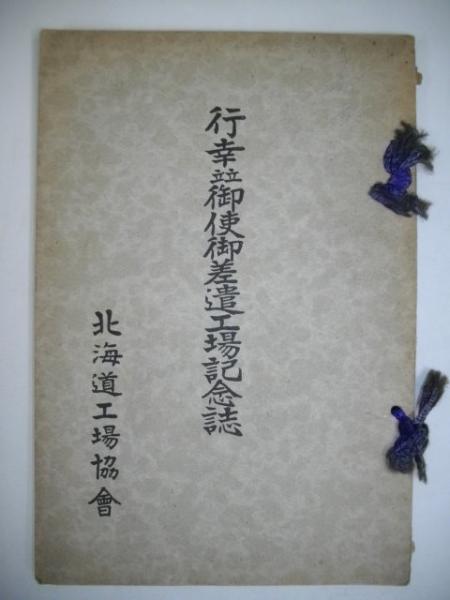 行幸並御使御差遣工場記念誌
北海道工場協會